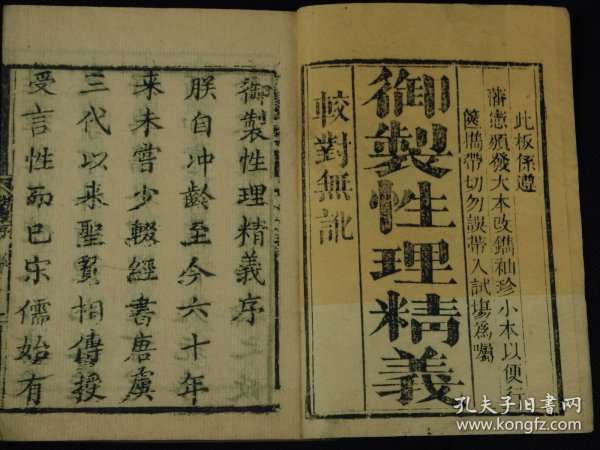 此板係遵
藩憲頒發大本改鐫袖珍小本以便行
篋攜帶切勿誤帶入試場為囑
御製性理精義
較對無訛
御製性理精義序
朕自冲齡至今六十年
來未嘗少輟經書唐虞
三代以來聖賢相傳授
受言性而已宋儒始有
孔夫子旧书网
www.kongfz.com